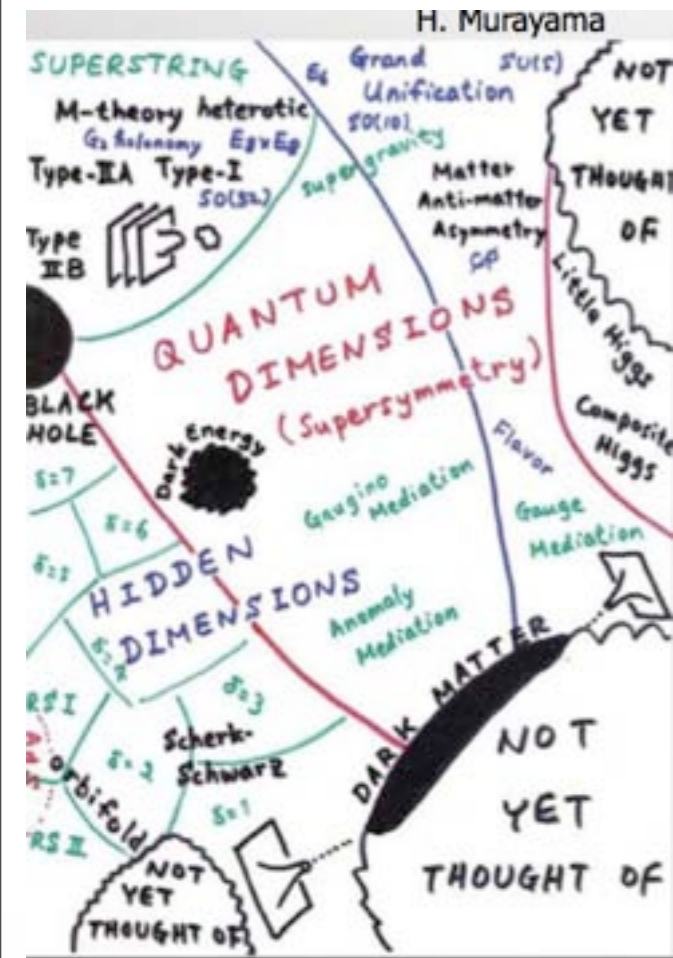 H. Murayama
SUPERSTRING
M-theory heterotic
G₂ holonomy E₈×E₈
Type-IIA Type-I
SO(32)
Type
IIB
E₆ Grand SU(5)
Unification
SO(10)
supergravity
Matter
Anti-matter
Asymmetry
NOT
YET
THOUGHT
OF
Little Higgs
Composite
Higgs
QUANTUM
DIMENSIONS
(Supersymmetry)
BLACK
HOLE
Dark Energy
Flavor
Gaugino
Mediation
Gauge
Mediation
δ=7
δ=6
δ=5
HIDDEN
DIMENSIONS
Anomaly
Mediation
δ=4
δ=3
DARK MATTER
RS I
AdS
Scherk-
Schwarz
δ=2
orbifold
δ=1
RS II
NOT
YET
THOUGHT OF
NOT
YET
THOUGHT OF